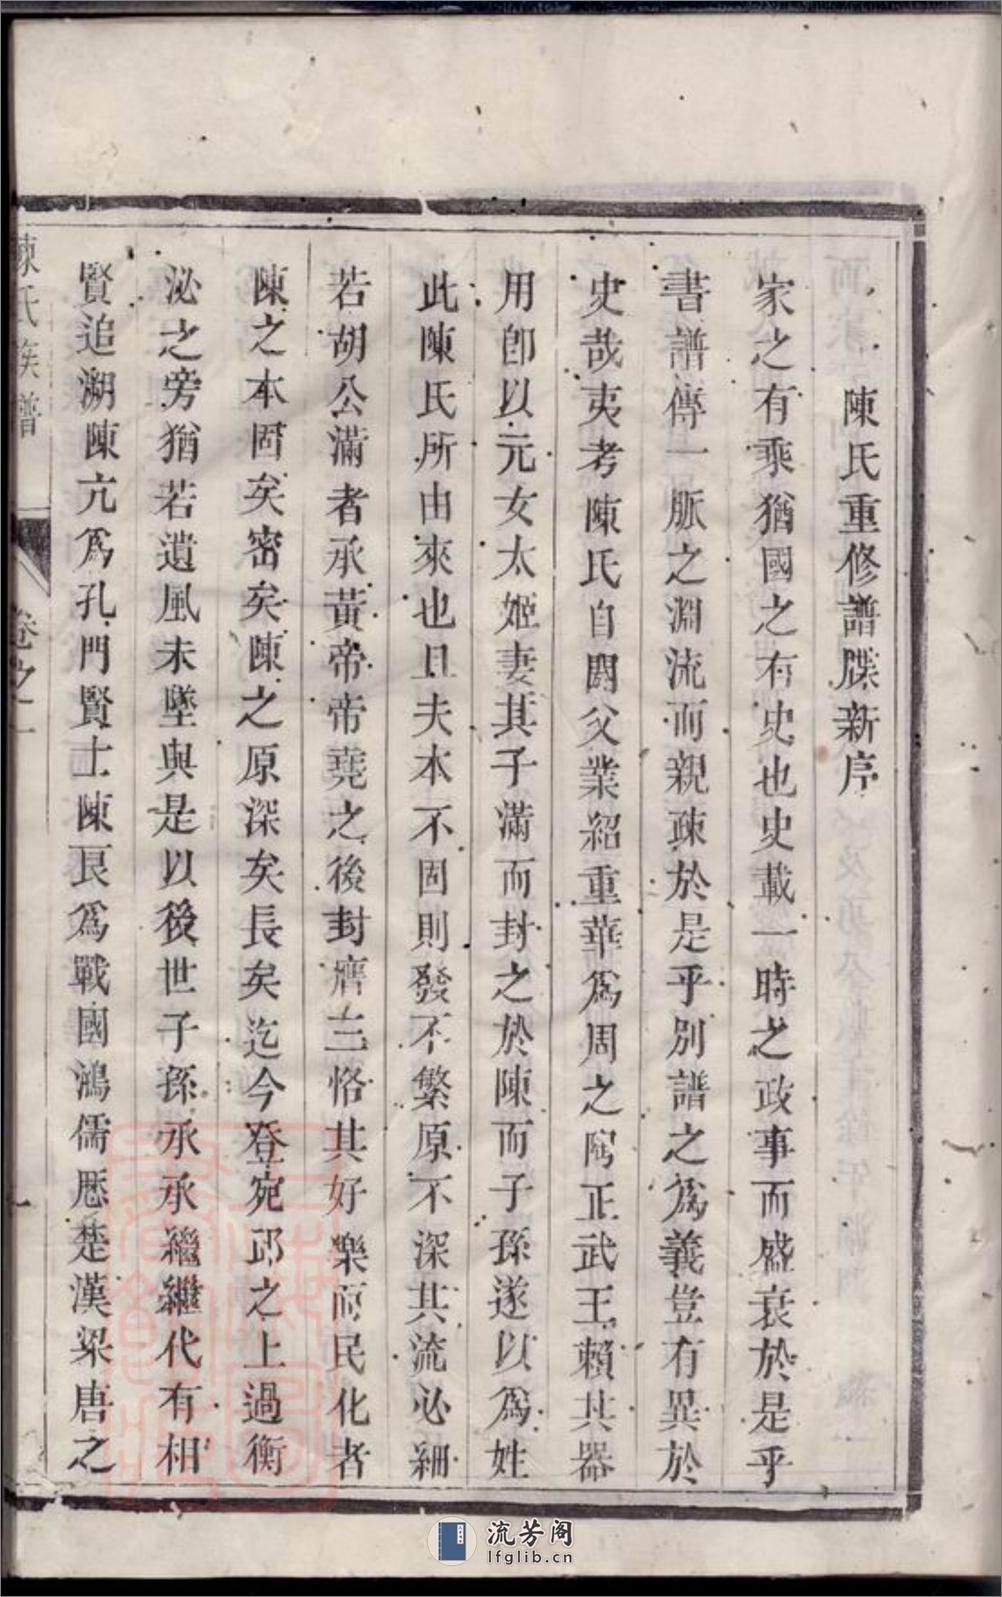 陳氏重修譜牒新序
家之有乘猶國之有史也史載一時之政事而盛衰於是乎
書譜傳一脈之淵流而親疎於是乎別譜之爲義豈有異於
史哉夷考陳氏自閼父業紹重華爲周之陶正武王賴其器
用卽以元女太姬妻其子滿而封之於陳而子孫遂以爲姓
此陳氏所由來也且夫本不固則發不繁原不深其流必細
若胡公滿者承黃帝帝堯之後封膺三恪其好樂而民化者
陳之本固矣密矣陳之原深矣長矣迄今登宛邱之上過衡
泌之旁猶若遺風未墜與是以後世子孫承承繼繼代有相
賢追溯陳亢爲孔門賢士陳良爲戰國鴻儒歷楚漢梁唐之
陳氏族譜
卷之一
一
流芳阁
lfglib.cn